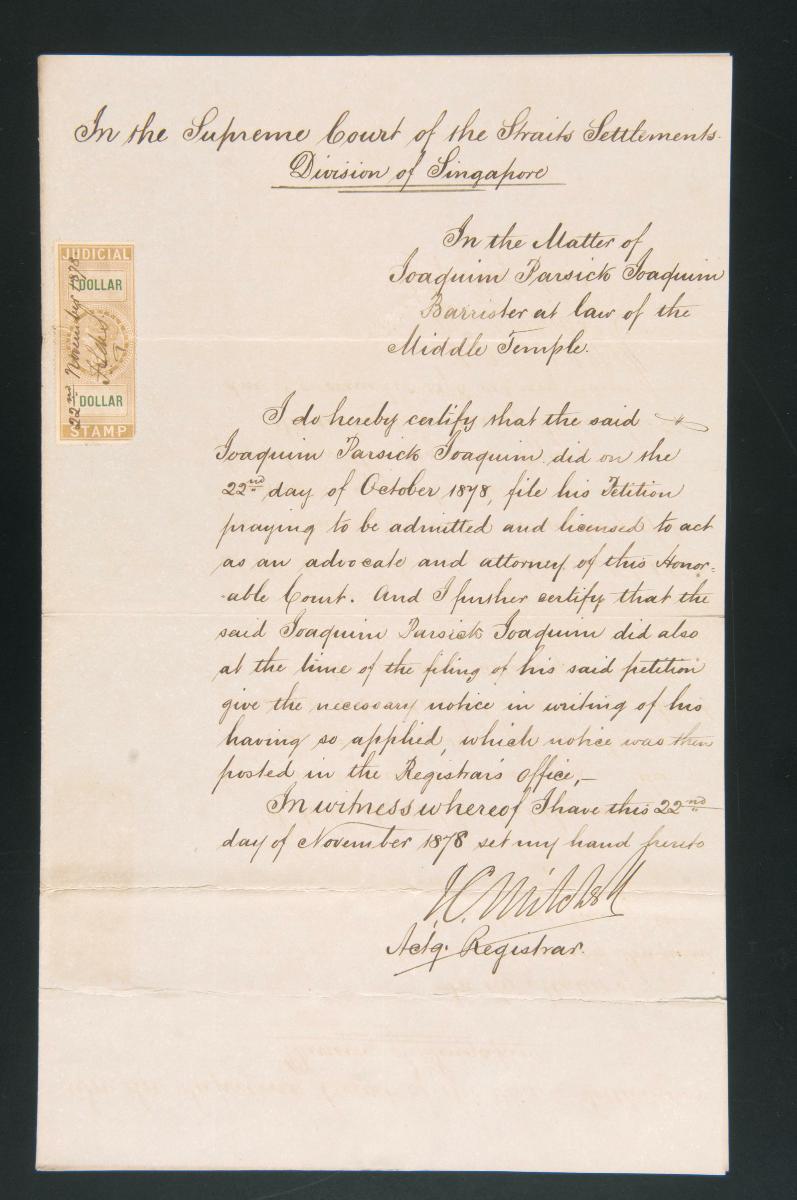 In the Supreme Court of the Straits Settlements.
Division of Singapore
JUDICIAL
DOLLAR
22nd November 1878
DOLLAR
STAMP
In the Matter of
Joaquim Parsick Joaquim
Barrister at law of the
Middle Temple.
I do hereby certify that the said
Joaquim Parsick Joaquim did on the
22nd day of October 1878, file his Petition
praying to be admitted and licensed to act
as an advocate and attorney of this Honor=
-able Court. And I further certify that the
said Joaquim Parsick Joaquim did also
at the time of the filing of his said petition
give the necessary notice in writing of his
having so applied, which notice was then
posted in the Registrar's office,—
In witness whereof I have this 22nd
day of November 1878 set my hand hereto
Mitchell
Actg. Registrar.